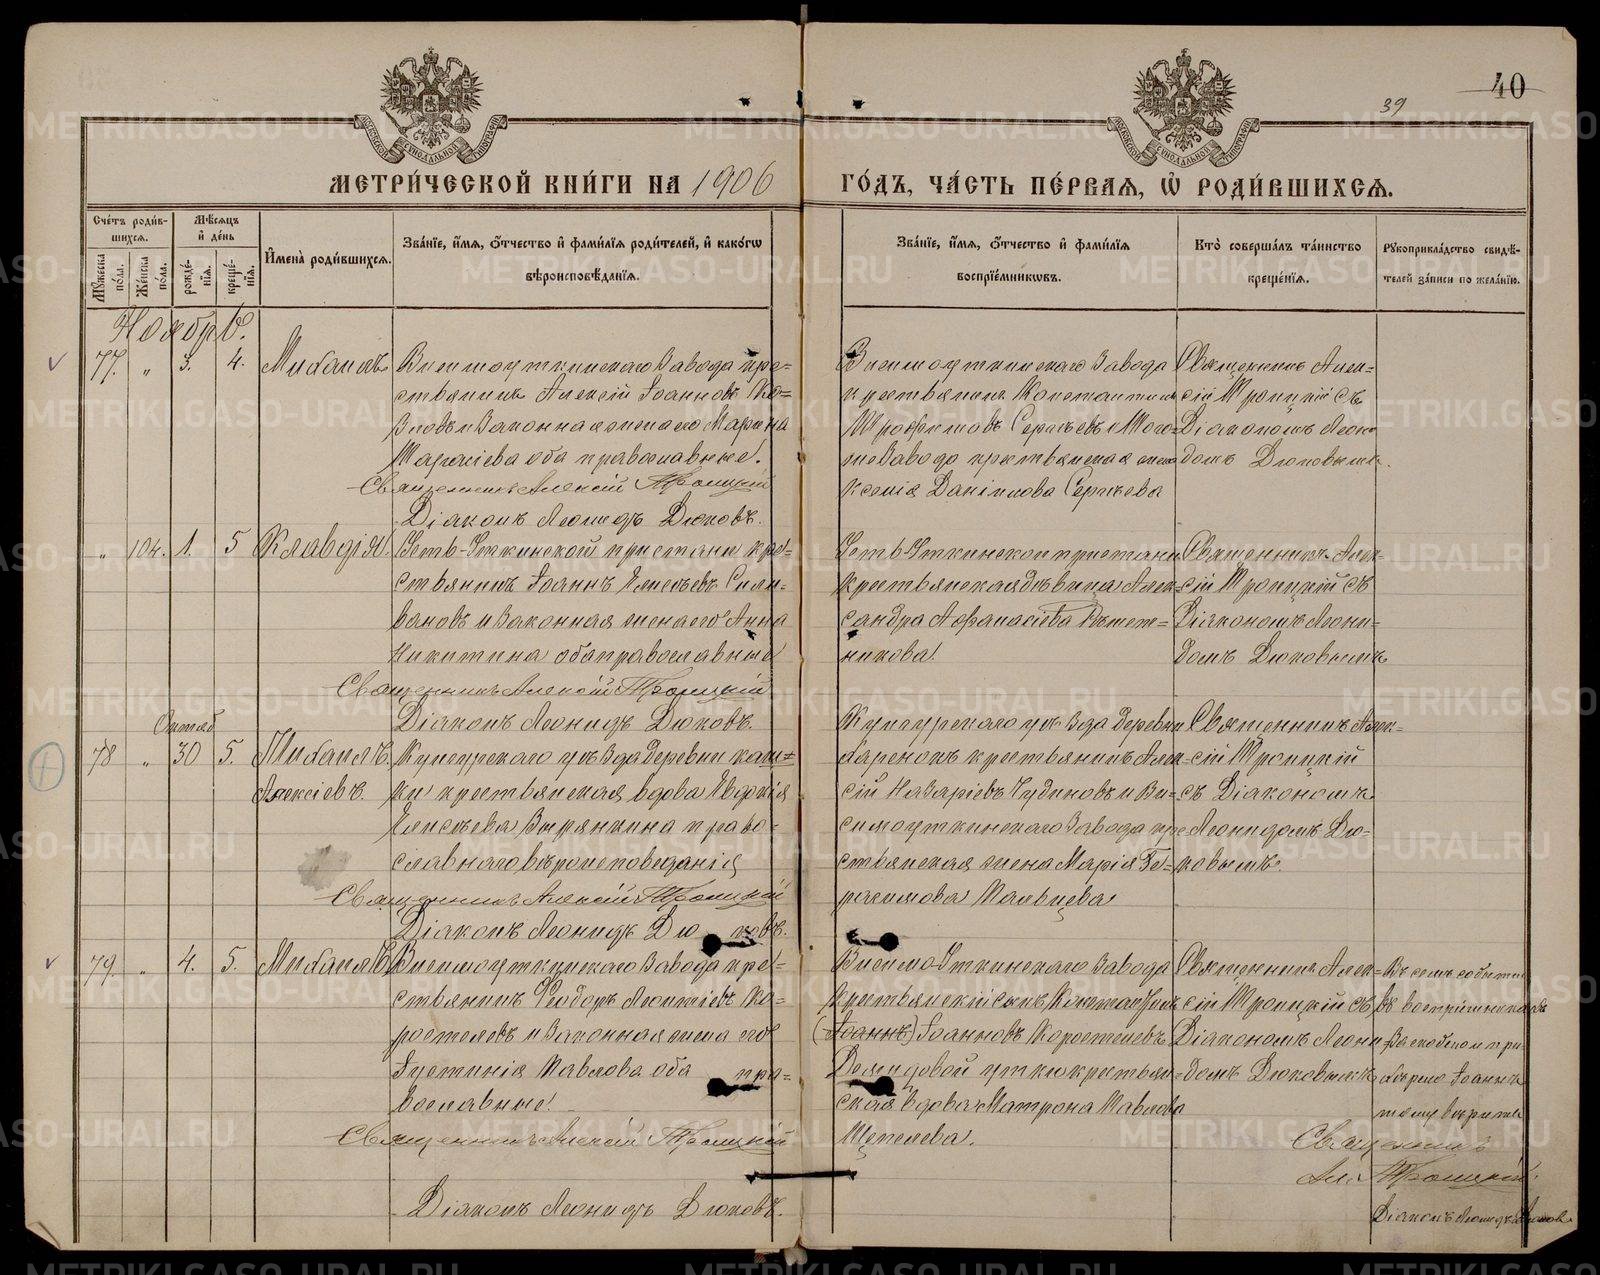 40
39
МЕТРИ́ЧЕСКОЙ КНИ́ГИ НА 1906
ГО́ДЪ, ЧА́СТЬ ПЕ́РВАЯ, Ѡ҆ РОДИ́ВШИХСѦ.
Сче́тъ роди́в-
шихсѧ.
Мѣ́сѧцъ
и҆ де́нь
Мꙋ́жеска по́ла.
Же́нска по́ла.
рожде́-
нїѧ.
креще́-
нїѧ.
И҆мена̀ роди́вшихсѧ.
Зва́нїе, и҆́мѧ, ѻ҆́тчество и҆ фами́лїѧ роди́телей, и҆ како́гѡ
вѣроисповѣ́данїѧ.
Зва́нїе, и҆́мѧ, ѻ҆́тчество и҆ фами́лїѧ
воспрїе́мникѡвъ.
Кто̀ соверша́лъ та́инство
креще́нїѧ.
Рꙋкоприкла́дство свидѣ́-
телей за́писи по жела́нїю.
Ноябрь.
77. „ 3. 4. Михаилъ
Висимоуткинскаго Завода кре-
стьянинъ Алексій Іоанновъ Ко-
зловъ и Законная жена его Марина
Тарасіева оба православные.
Священникъ Алексій Троицкій
Діаконъ Леонидъ Дюковъ.
Висимоуткинскаго Завода
крестьянинъ Константинъ
Трофимовъ Сергѣевъ и Того-
же Завода крестьянская жена
Ксенія Даніилова Сергѣева
Священникъ Алек-
сій Троицкій съ
Діакономъ Леони-
домъ Дюковымъ.
„ 104. 1. 5 Клавдія.
Усть-Уткинской пристани кре-
стьянинъ Іоаннъ Елисѣевъ Сили-
вановъ и Законная жена его Анна
Никитина оба православные
Священникъ Алексій Троицкій
Діаконъ Леонидъ Дюковъ.
Усть-Уткинской пристани
крестьянская дѣвица Алек-
сандра Афанасіева
никова.
Священникъ Алек-
сій Троицкій съ
Діакономъ Леони-
домъ Дюковымъ
Октяб.
78 „ 30 5. Михаилъ.
Алексіевъ.
Кунгурскаго уѣзда деревни
ки крестьянская вдова Евдокія
Елисѣева Вырянкина право-
славнаго вѣроисповеданія
Священникъ Алексій Троицкій
Діаконъ Леонидъ Дюковъ.
Кунгурскаго уѣзда деревни
крестьянинъ Алек-
сій Назаріевъ Чудиновъ и Ви-
симоуткинскаго Завода кре-
стьянская жена Марія Ге-
расимова Мальцева
Священникъ Алек-
сій Троицкій
съ Діакономъ
Леонидомъ Дю-
ковымъ.
79. „ 4. 5. Михаилъ
Висимоуткинскаго Завода кре-
стьянинъ Ѳеодоръ Леонтіевъ Ко-
ростелевъ и Законная жена его
Іустинія Павлова оба пра-
вославные.
Священникъ Алексій Троицкій
Діаконъ Леонидъ Дюковъ.
Висимо-Уткинскаго Завода
крестьянскій сынъ Константинъ
(Іоаннъ) Іоанновъ Коростелевъ
Демидовой утки крестьян-
ская вдова Матрона Павлова
Щепелева.
Священникъ Алек-
сій Троицкій съ
Діакономъ Леони-
домъ Дюковымъ
Въ семъ событіи
въ воспріемникахъ
Іоаннъ
тому вѣрить
Священникъ
Ал. Троицкій.
Діаконъ Леонидъ Дюковъ